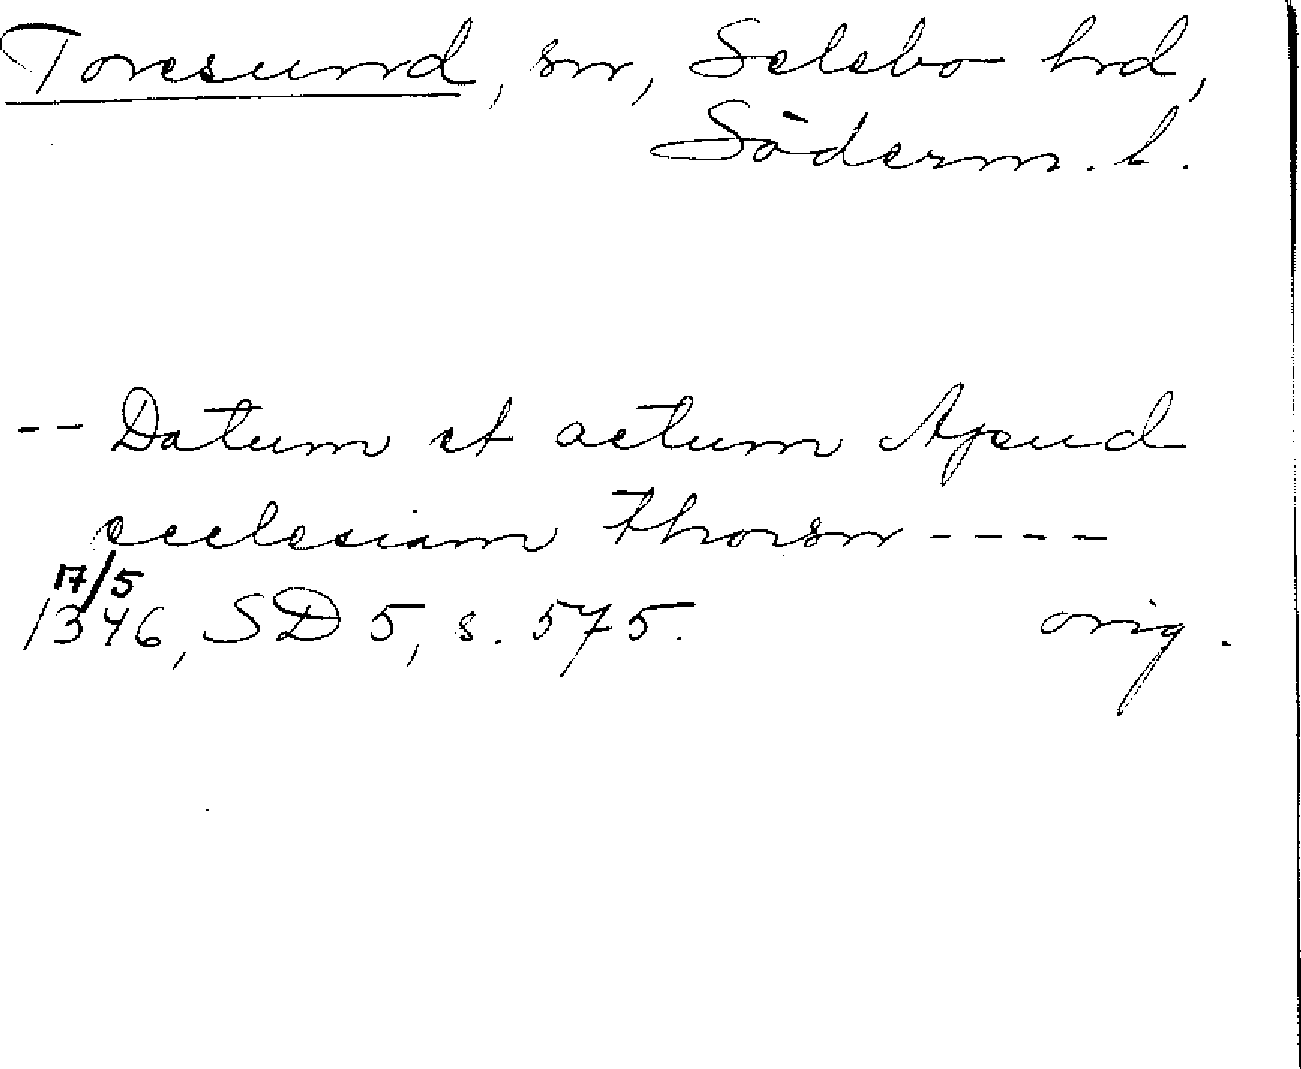 Toresund, sn, Selebo hrd,
Söderm. l.
-- Datum et actum Apud
ecclesiam Thorsn ----
17/5
1346, SD 5, s. 575. orig.